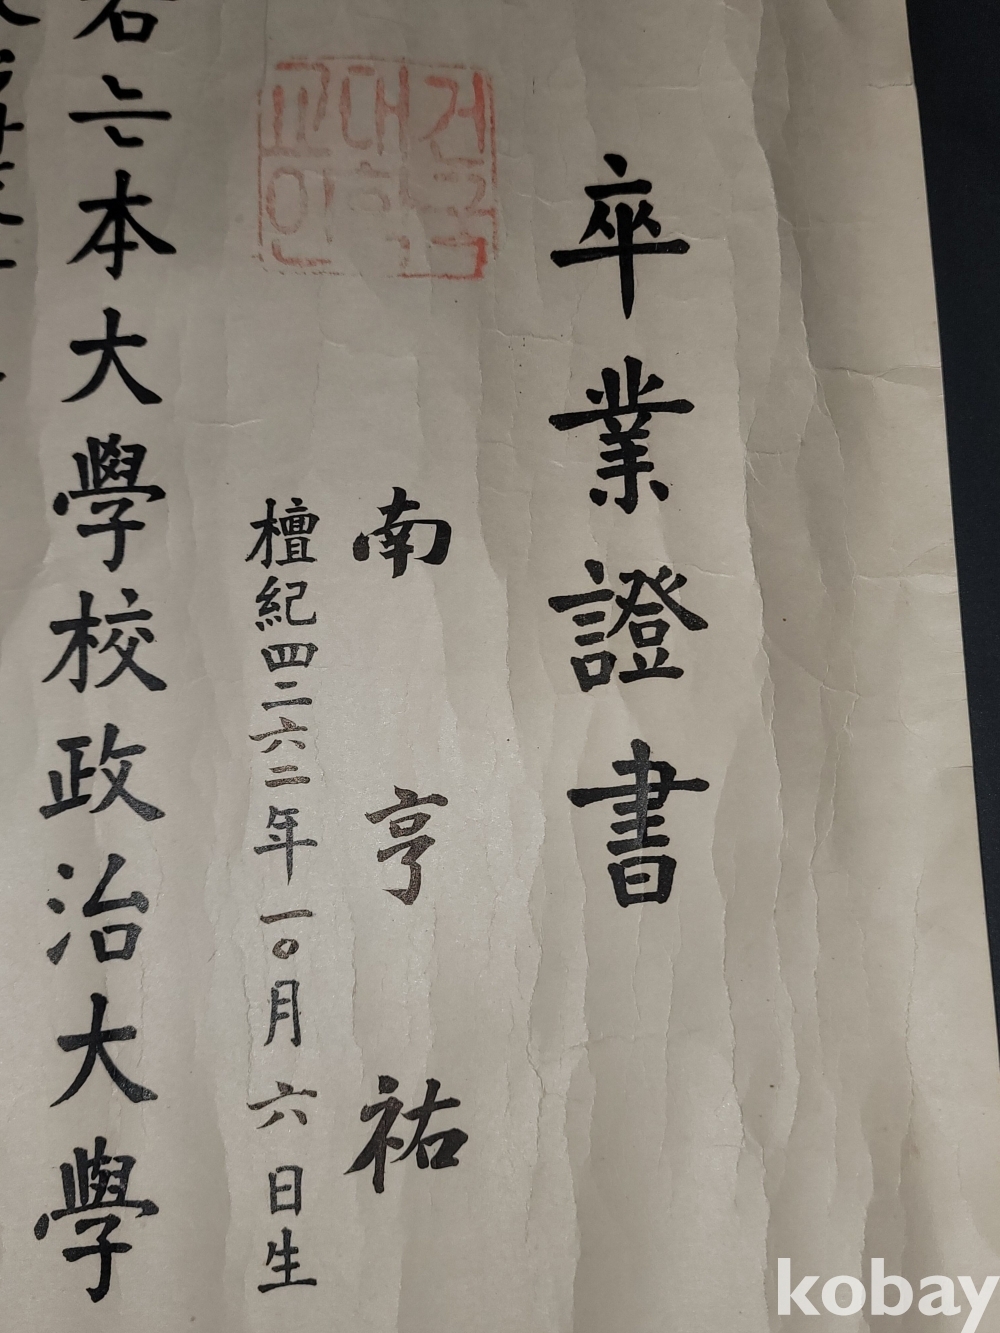 卒業證書
건국
대학
교인
南亨祐
檀紀四二六二年一〇月六日生
右는本大學校政治大學
kobay